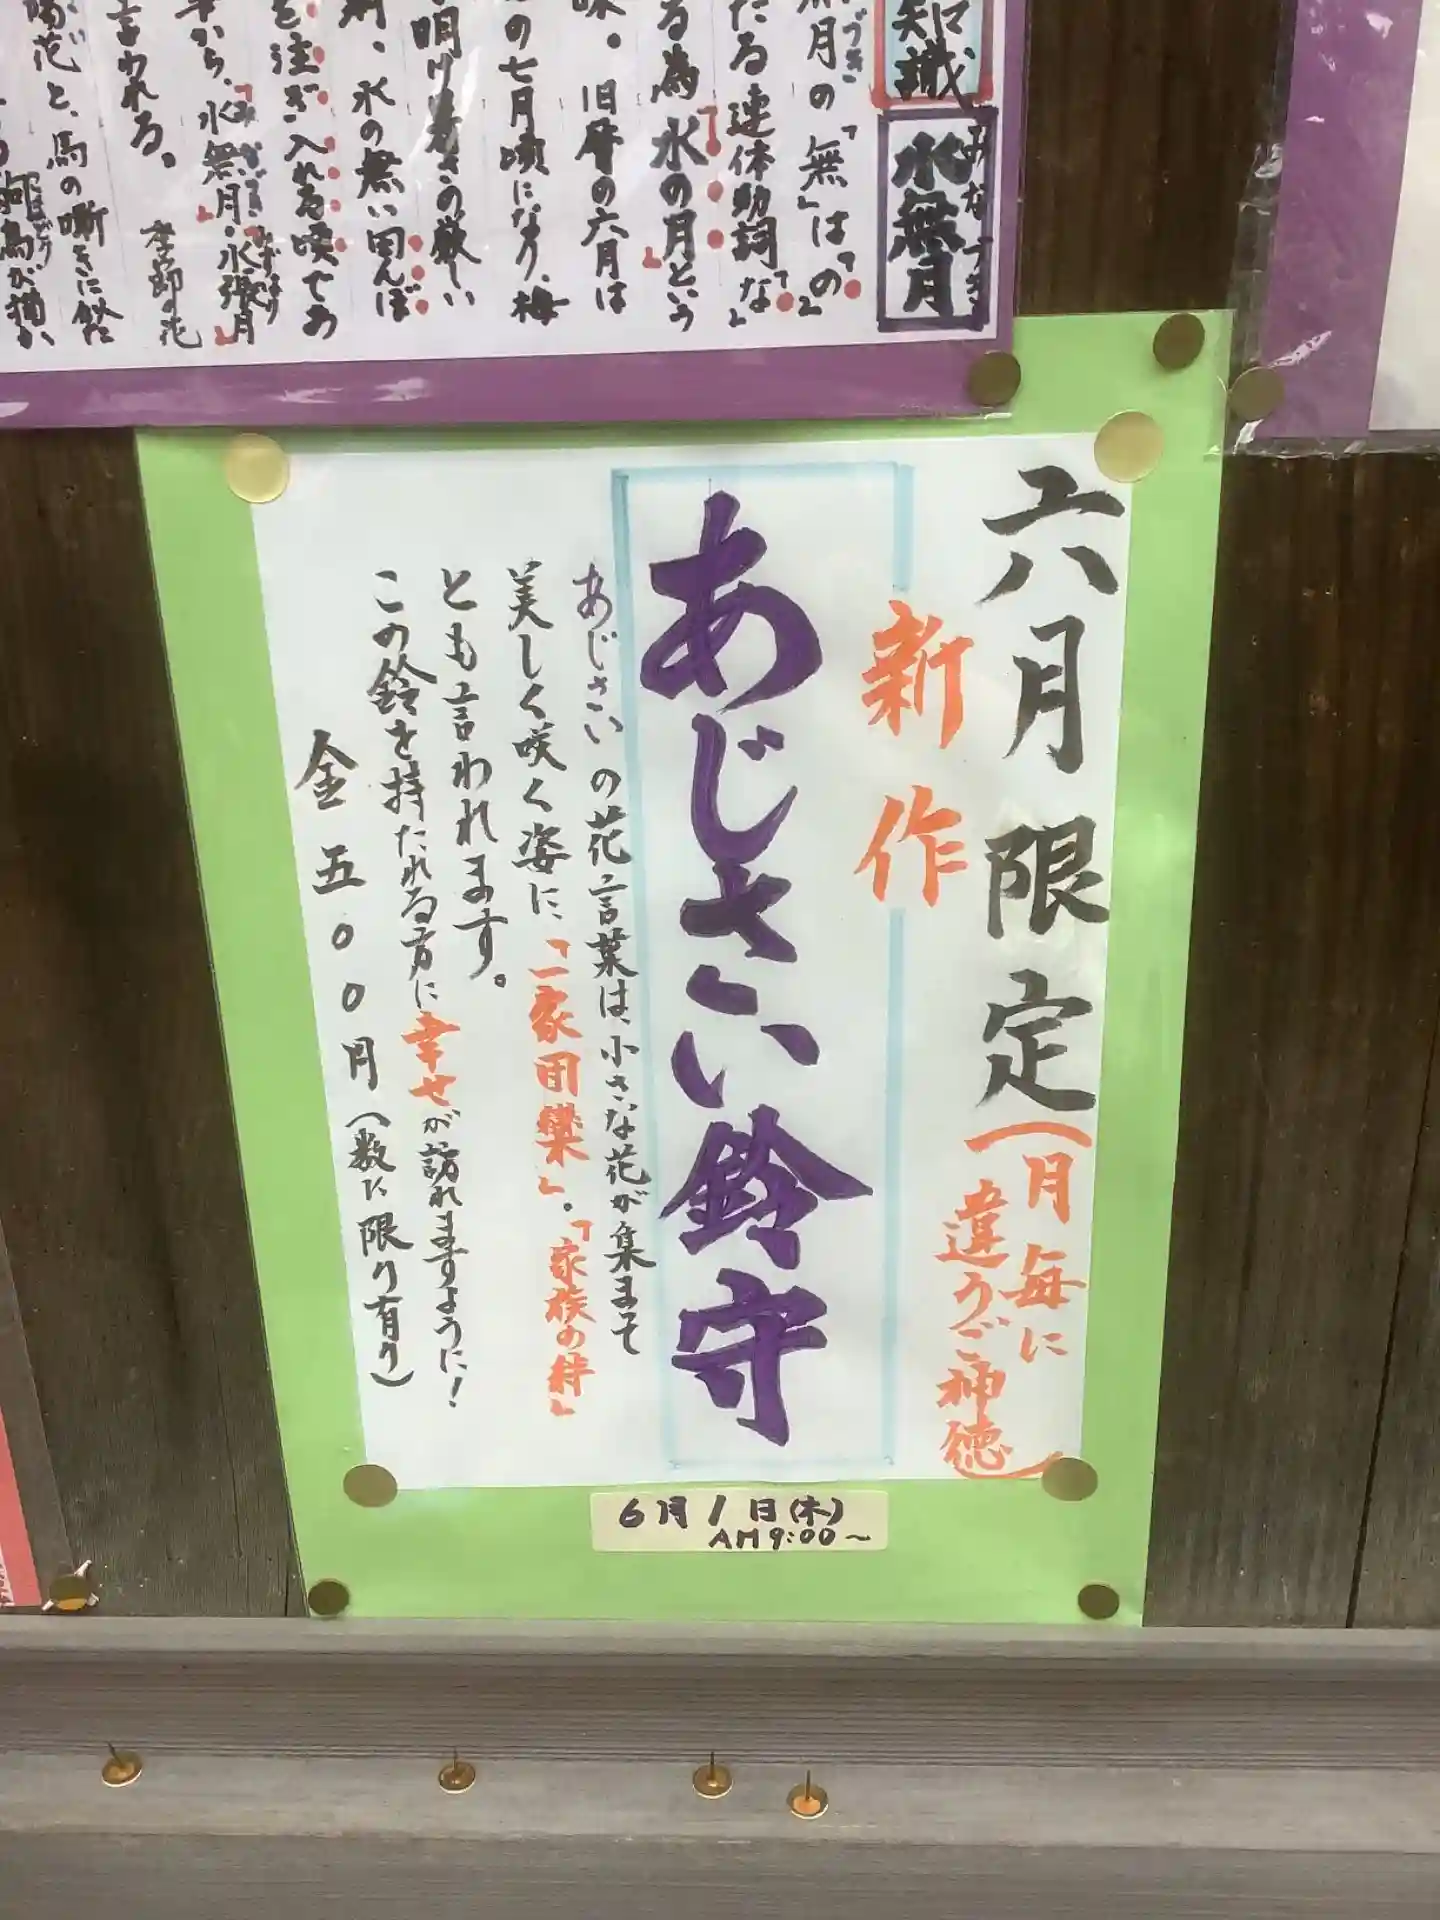 知識
水無月
みなづき
無月の「無」は「の」
たる連体助詞「な」
る為「水の月」という
味。旧暦の六月は
の七月頃になり、梅
明け暑さの厳しい
水の無い田んぼ
を注ぎ入れる頃であ
から、「水無月」「水張月」
言われる。
季節の花
花と、馬の嘶きに似た
六月限定
(月毎に
違うご神徳)
新作
あじさい鈴守
あじさいの花言葉は、小さな花が集まって
美しく咲く姿に、「一家団欒」。「家族の絆」
とも言われます。
この鈴を持たれる方に幸せが訪れますように!
金五〇〇円(数に限り有り)
6月1日(木)
AM9:00〜